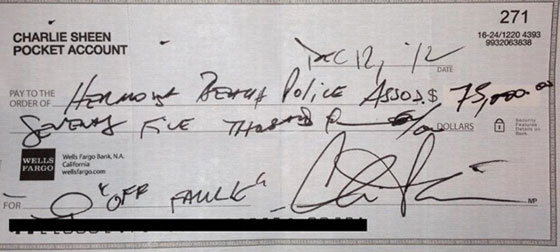 271
CHARLIE SHEEN
POCKET ACCOUNT
16-24/1220 4393
9932063838
DEC 12, '12
DATE
PAY TO THE
ORDER OF HERMOSA BEACH POLICE ASSOS. $ 75,000.00
SEVENTY FIVE THOUSAND DOLLARS
Security
Features
Details on
Back.
WELLS
FARGO
Wells Fargo Bank, N.A.
California
wellsfargo.com
FOR "OFF FAULK"
MP